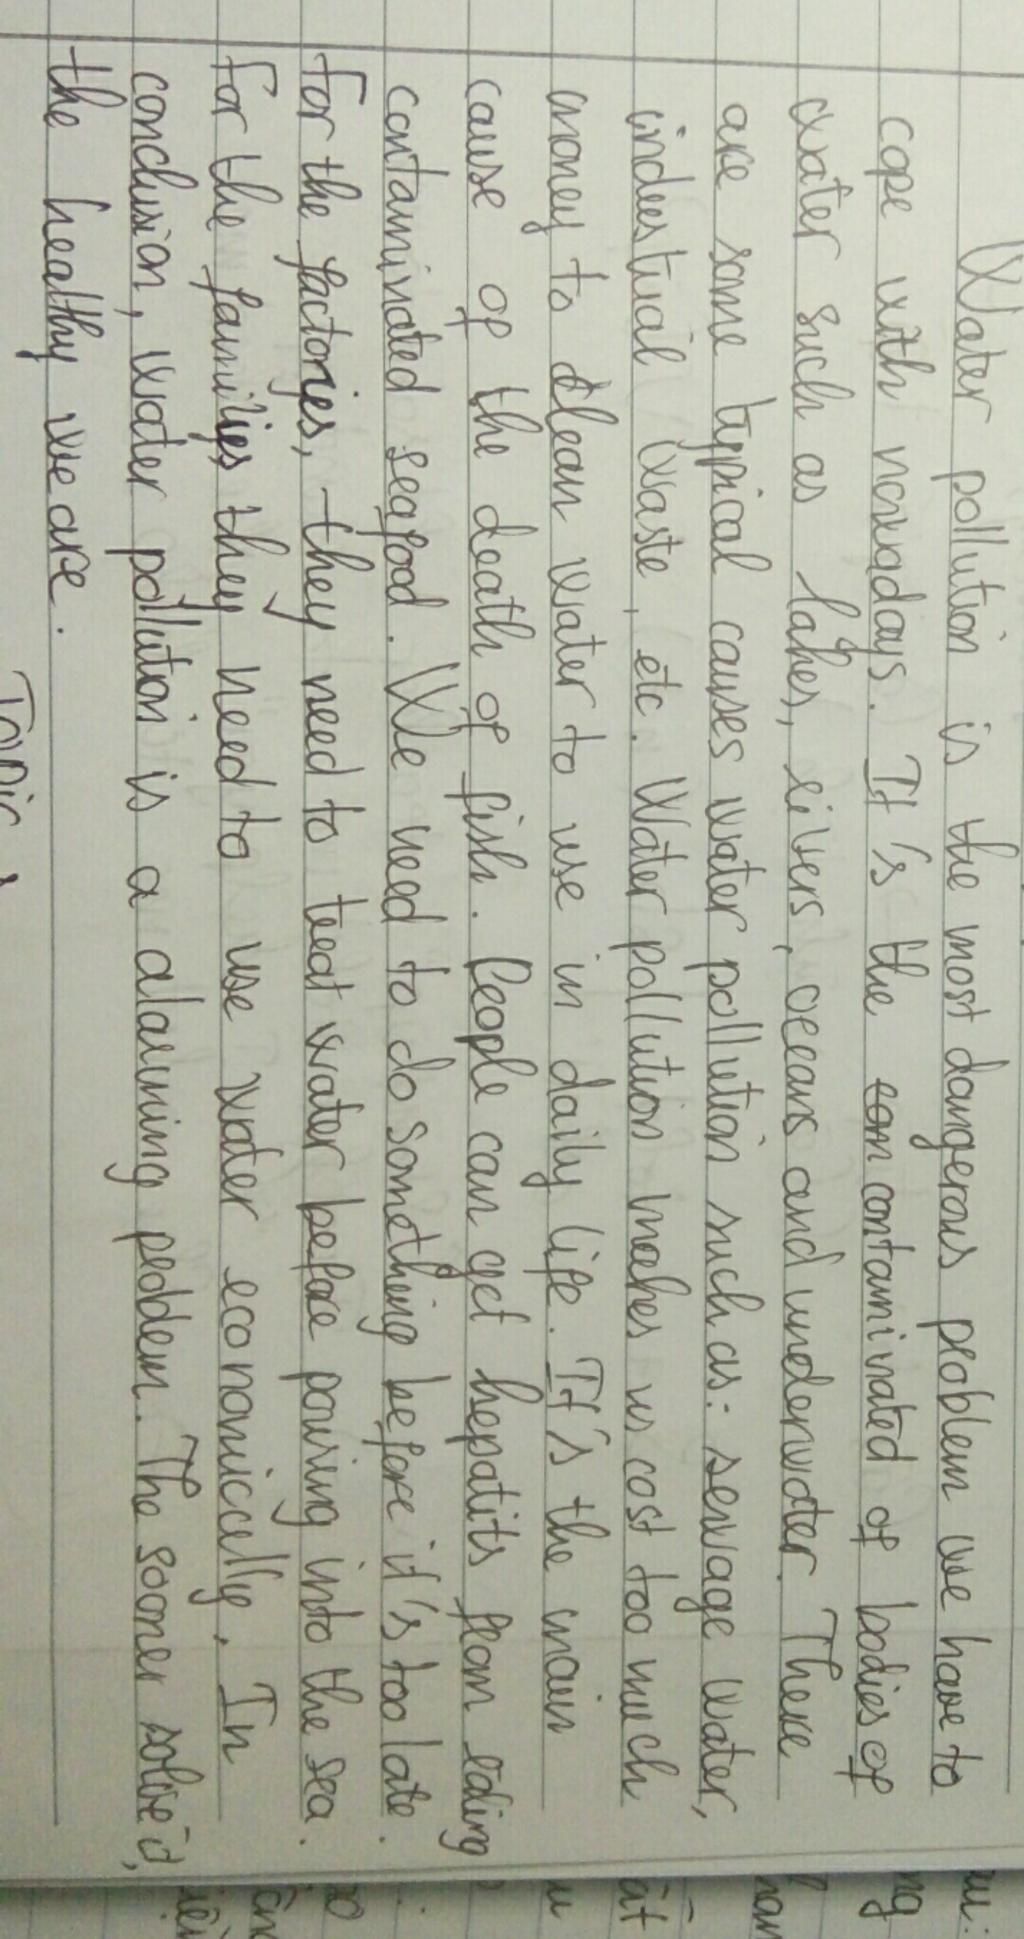 Water pollution is the most dangerous problem we have to
cope with nowadays. It's the contaminated of bodies of
water such as lakes, rivers, oceans and underwater. There
are some typical causes water pollution such as: sewage water,
industrial waste, etc. Water pollution makes us cost too much
money to clean water to use in daily life. It's the main
cause of the death of fish. People can get hepatits from eating
contaminated seafood. We need to do something before it's too late.
For the factories, they need to treat water before pouring into the sea.
For the families, they need to use water economically. In
conclusion, water pollution is a alarming problem. The sooner solve it,
the healthy we are.